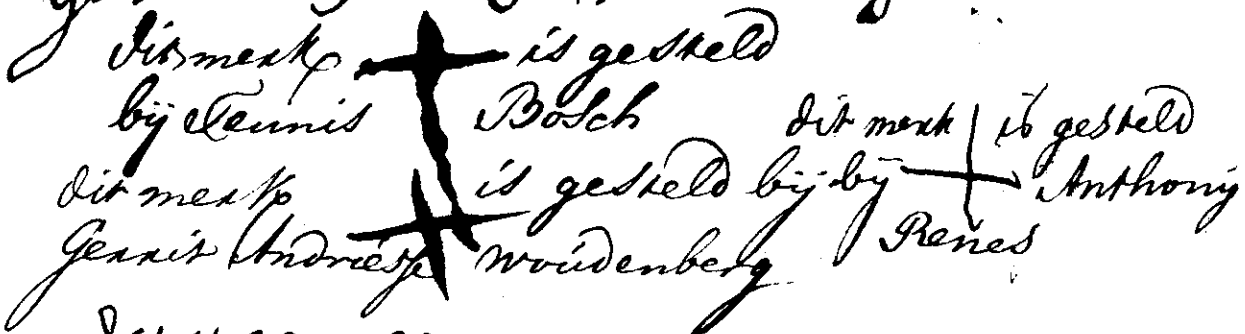 dit merk is gesteld
bij Teunis Bosch
dit merk is gesteld bij
Gerrit Andriesse woudenberg
dit merk is gesteld
bij Anthony
Renes